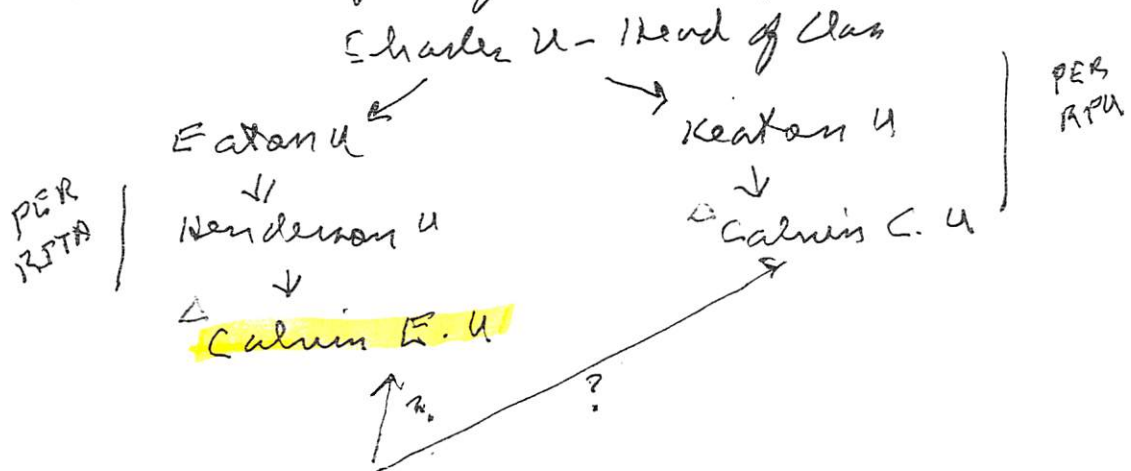 Charles U - Head of Clan
PER
RPU
Eaton U
Keaton U
PER
RPTA
Henderson U
Calvin C. U
Calvin E. U
?
?